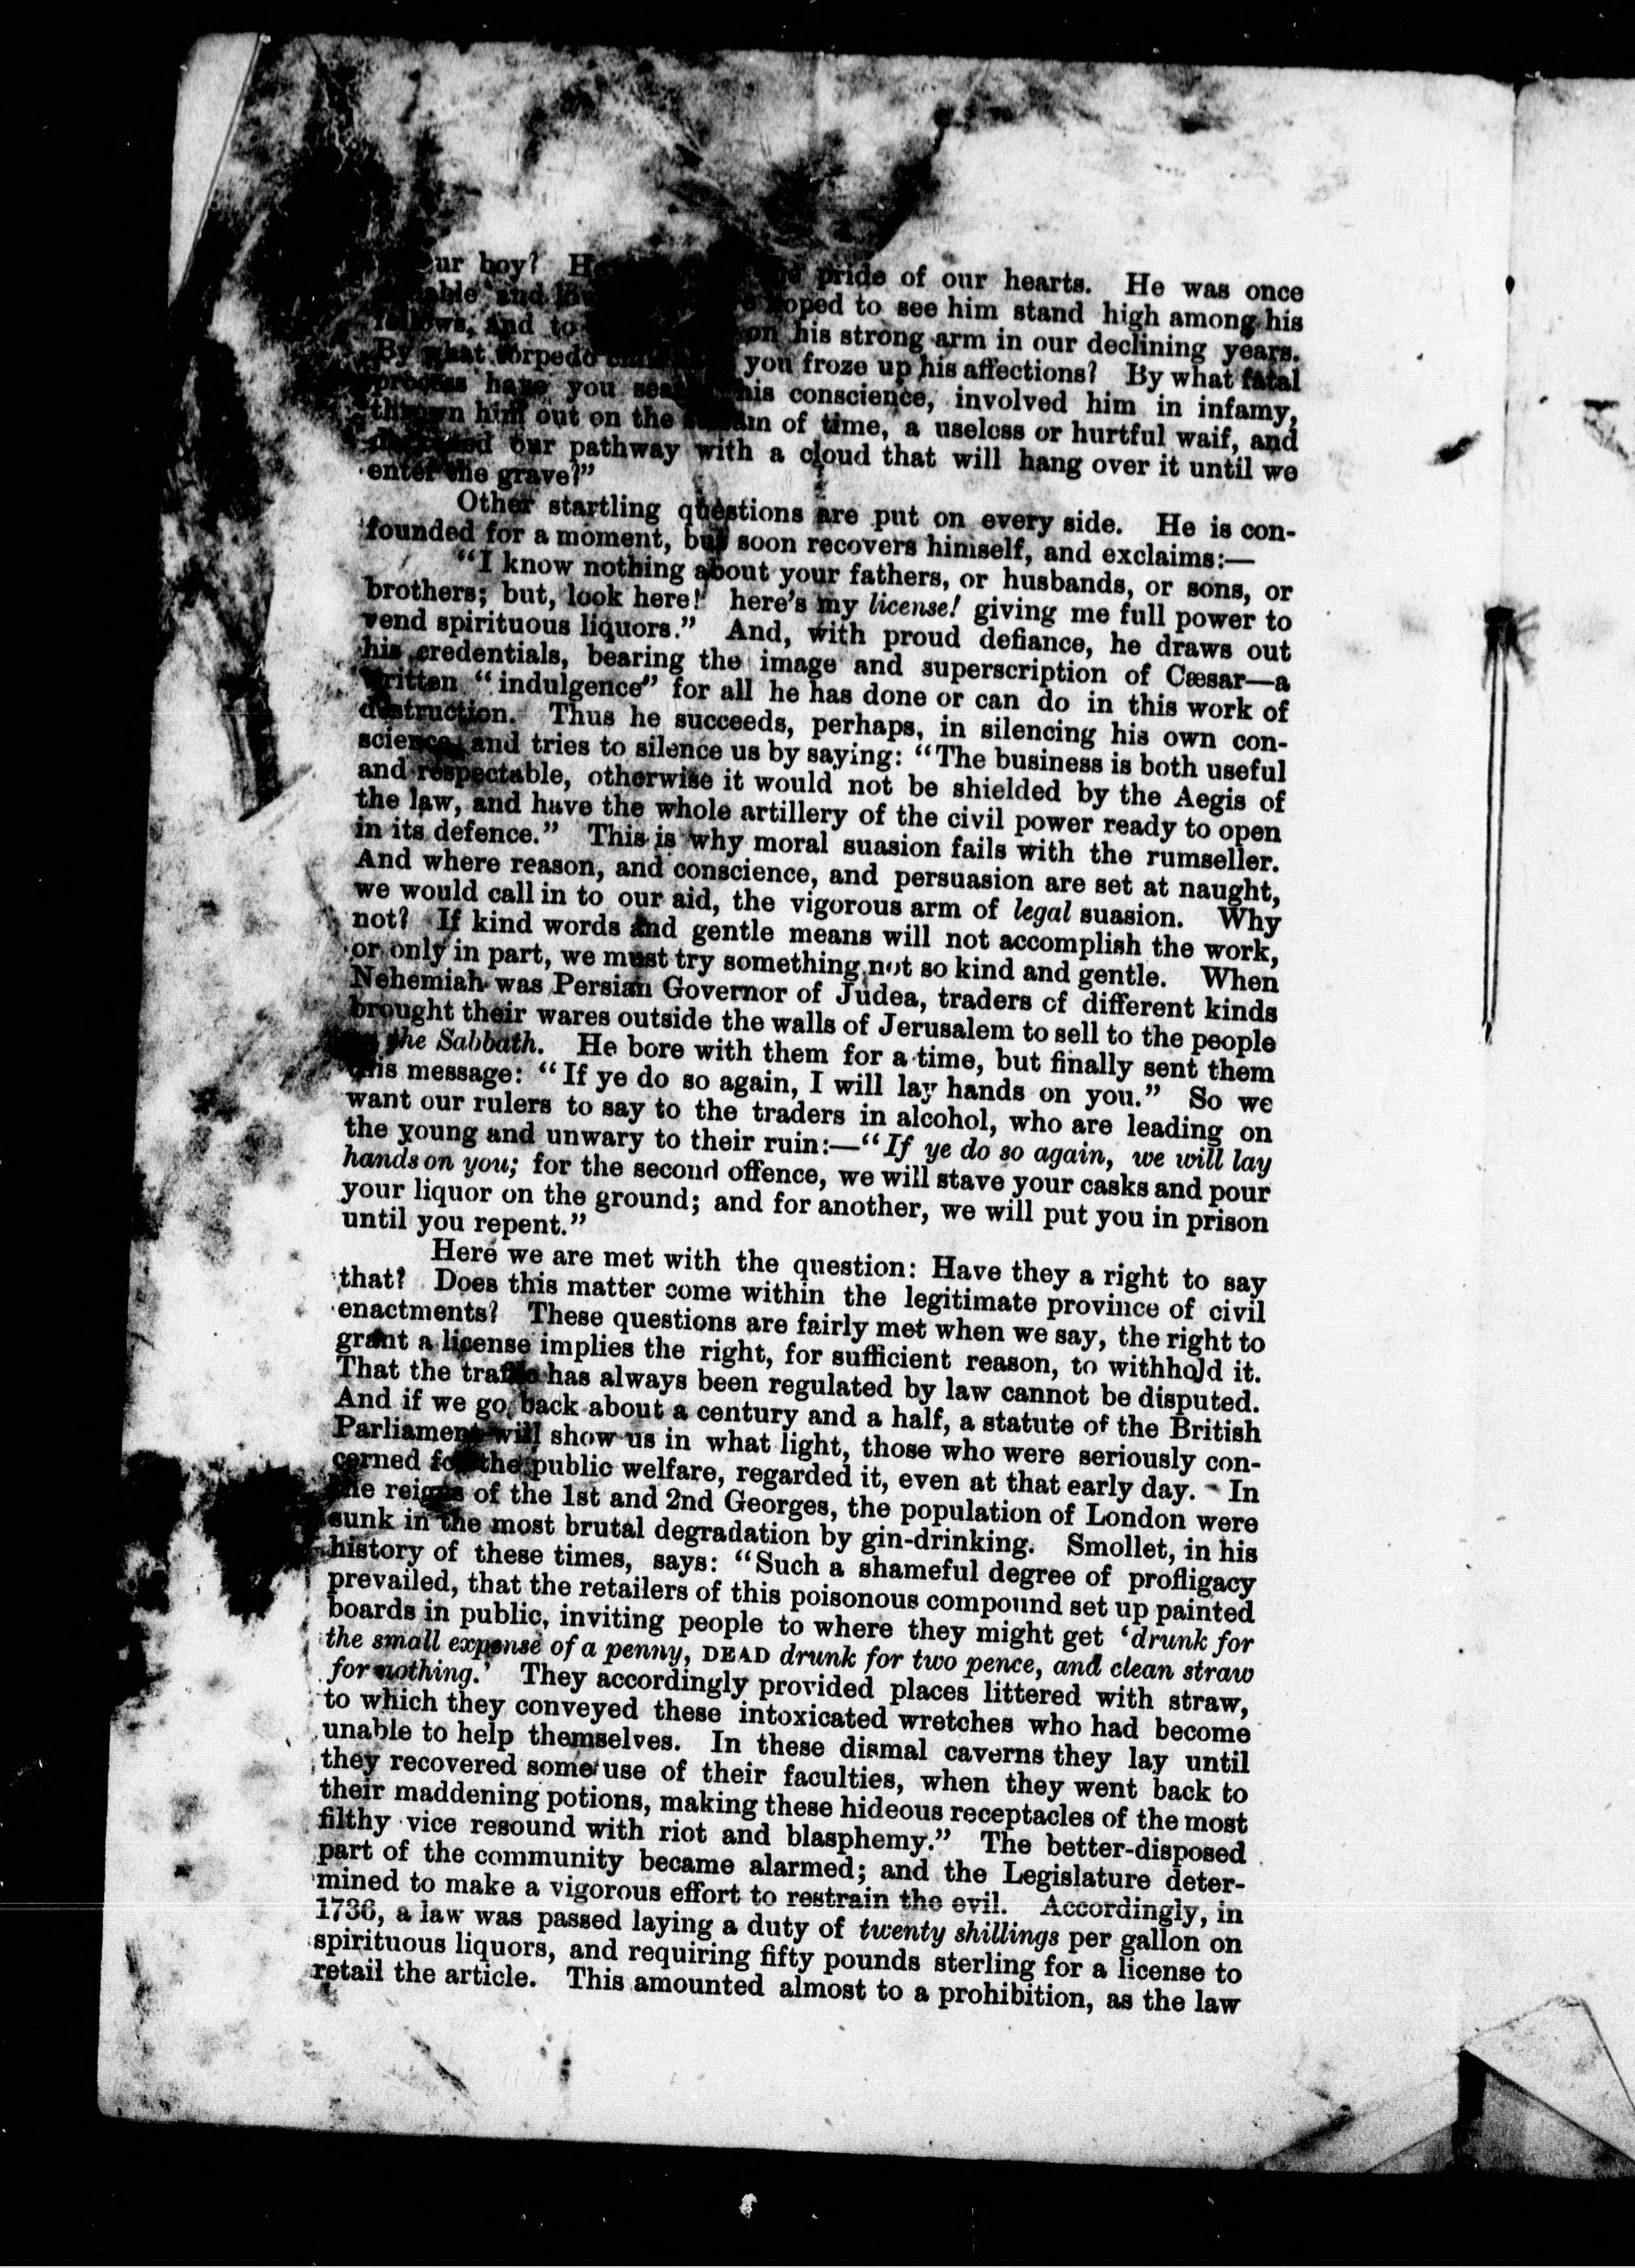 boy? pride of our hearts. He was once
and hoped to see him stand high among his
and to on his strong arm in our declining years.
By what torpedo you froze up his affections? By what fatal
process have you his conscience, involved him in infamy,
thrown him out on the of time, a useless or hurtful waif, and
our pathway with a cloud that will hang over it until we
enter the grave?”
Other startling questions are put on every side. He is con-
founded for a moment, but soon recovers himself, and exclaims:—
“I know nothing about your fathers, or husbands, or sons, or
brothers; but, look here! here’s my license! giving me full power to
vend spirituous liquors.” And, with proud defiance, he draws out
his credentials, bearing the image and superscription of Cæsar—a
written “indulgence” for all he has done or can do in this work of
destruction. Thus he succeeds, perhaps, in silencing his own con-
science, and tries to silence us by saying: “The business is both useful
and respectable, otherwise it would not be shielded by the Aegis of
the law, and have the whole artillery of the civil power ready to open
in its defence.” This is why moral suasion fails with the rumseller.
And where reason, and conscience, and persuasion are set at naught,
we would call in to our aid, the vigorous arm of legal suasion. Why
not? If kind words and gentle means will not accomplish the work,
or only in part, we must try something not so kind and gentle. When
Nehemiah was Persian Governor of Judea, traders of different kinds
brought their wares outside the walls of Jerusalem to sell to the people
the Sabbath. He bore with them for a time, but finally sent them
this message: “If ye do so again, I will lay hands on you.” So we
want our rulers to say to the traders in alcohol, who are leading on
the young and unwary to their ruin:—“If ye do so again, we will lay
hands on you; for the second offence, we will stave your casks and pour
your liquor on the ground; and for another, we will put you in prison
until you repent.”
Here we are met with the question: Have they a right to say
that? Does this matter come within the legitimate province of civil
enactments? These questions are fairly met when we say, the right to
grant a license implies the right, for sufficient reason, to withhold it.
That the traffic has always been regulated by law cannot be disputed.
And if we go back about a century and a half, a statute of the British
Parliament will show us in what light, those who were seriously con-
cerned for the public welfare, regarded it, even at that early day. In
the reigns of the 1st and 2nd Georges, the population of London were
sunk in the most brutal degradation by gin-drinking. Smollet, in his
history of these times, says: “Such a shameful degree of profligacy
prevailed, that the retailers of this poisonous compound set up painted
boards in public, inviting people to where they might get ‘drunk for
the small expense of a penny, DEAD drunk for two pence, and clean straw
for nothing.’ They accordingly provided places littered with straw,
to which they conveyed these intoxicated wretches who had become
unable to help themselves. In these dismal caverns they lay until
they recovered some use of their faculties, when they went back to
their maddening potions, making these hideous receptacles of the most
filthy vice resound with riot and blasphemy.” The better-disposed
part of the community became alarmed; and the Legislature deter-
mined to make a vigorous effort to restrain the evil. Accordingly, in
1736, a law was passed laying a duty of twenty shillings per gallon on
spirituous liquors, and requiring fifty pounds sterling for a license to
retail the article. This amounted almost to a prohibition, as the law